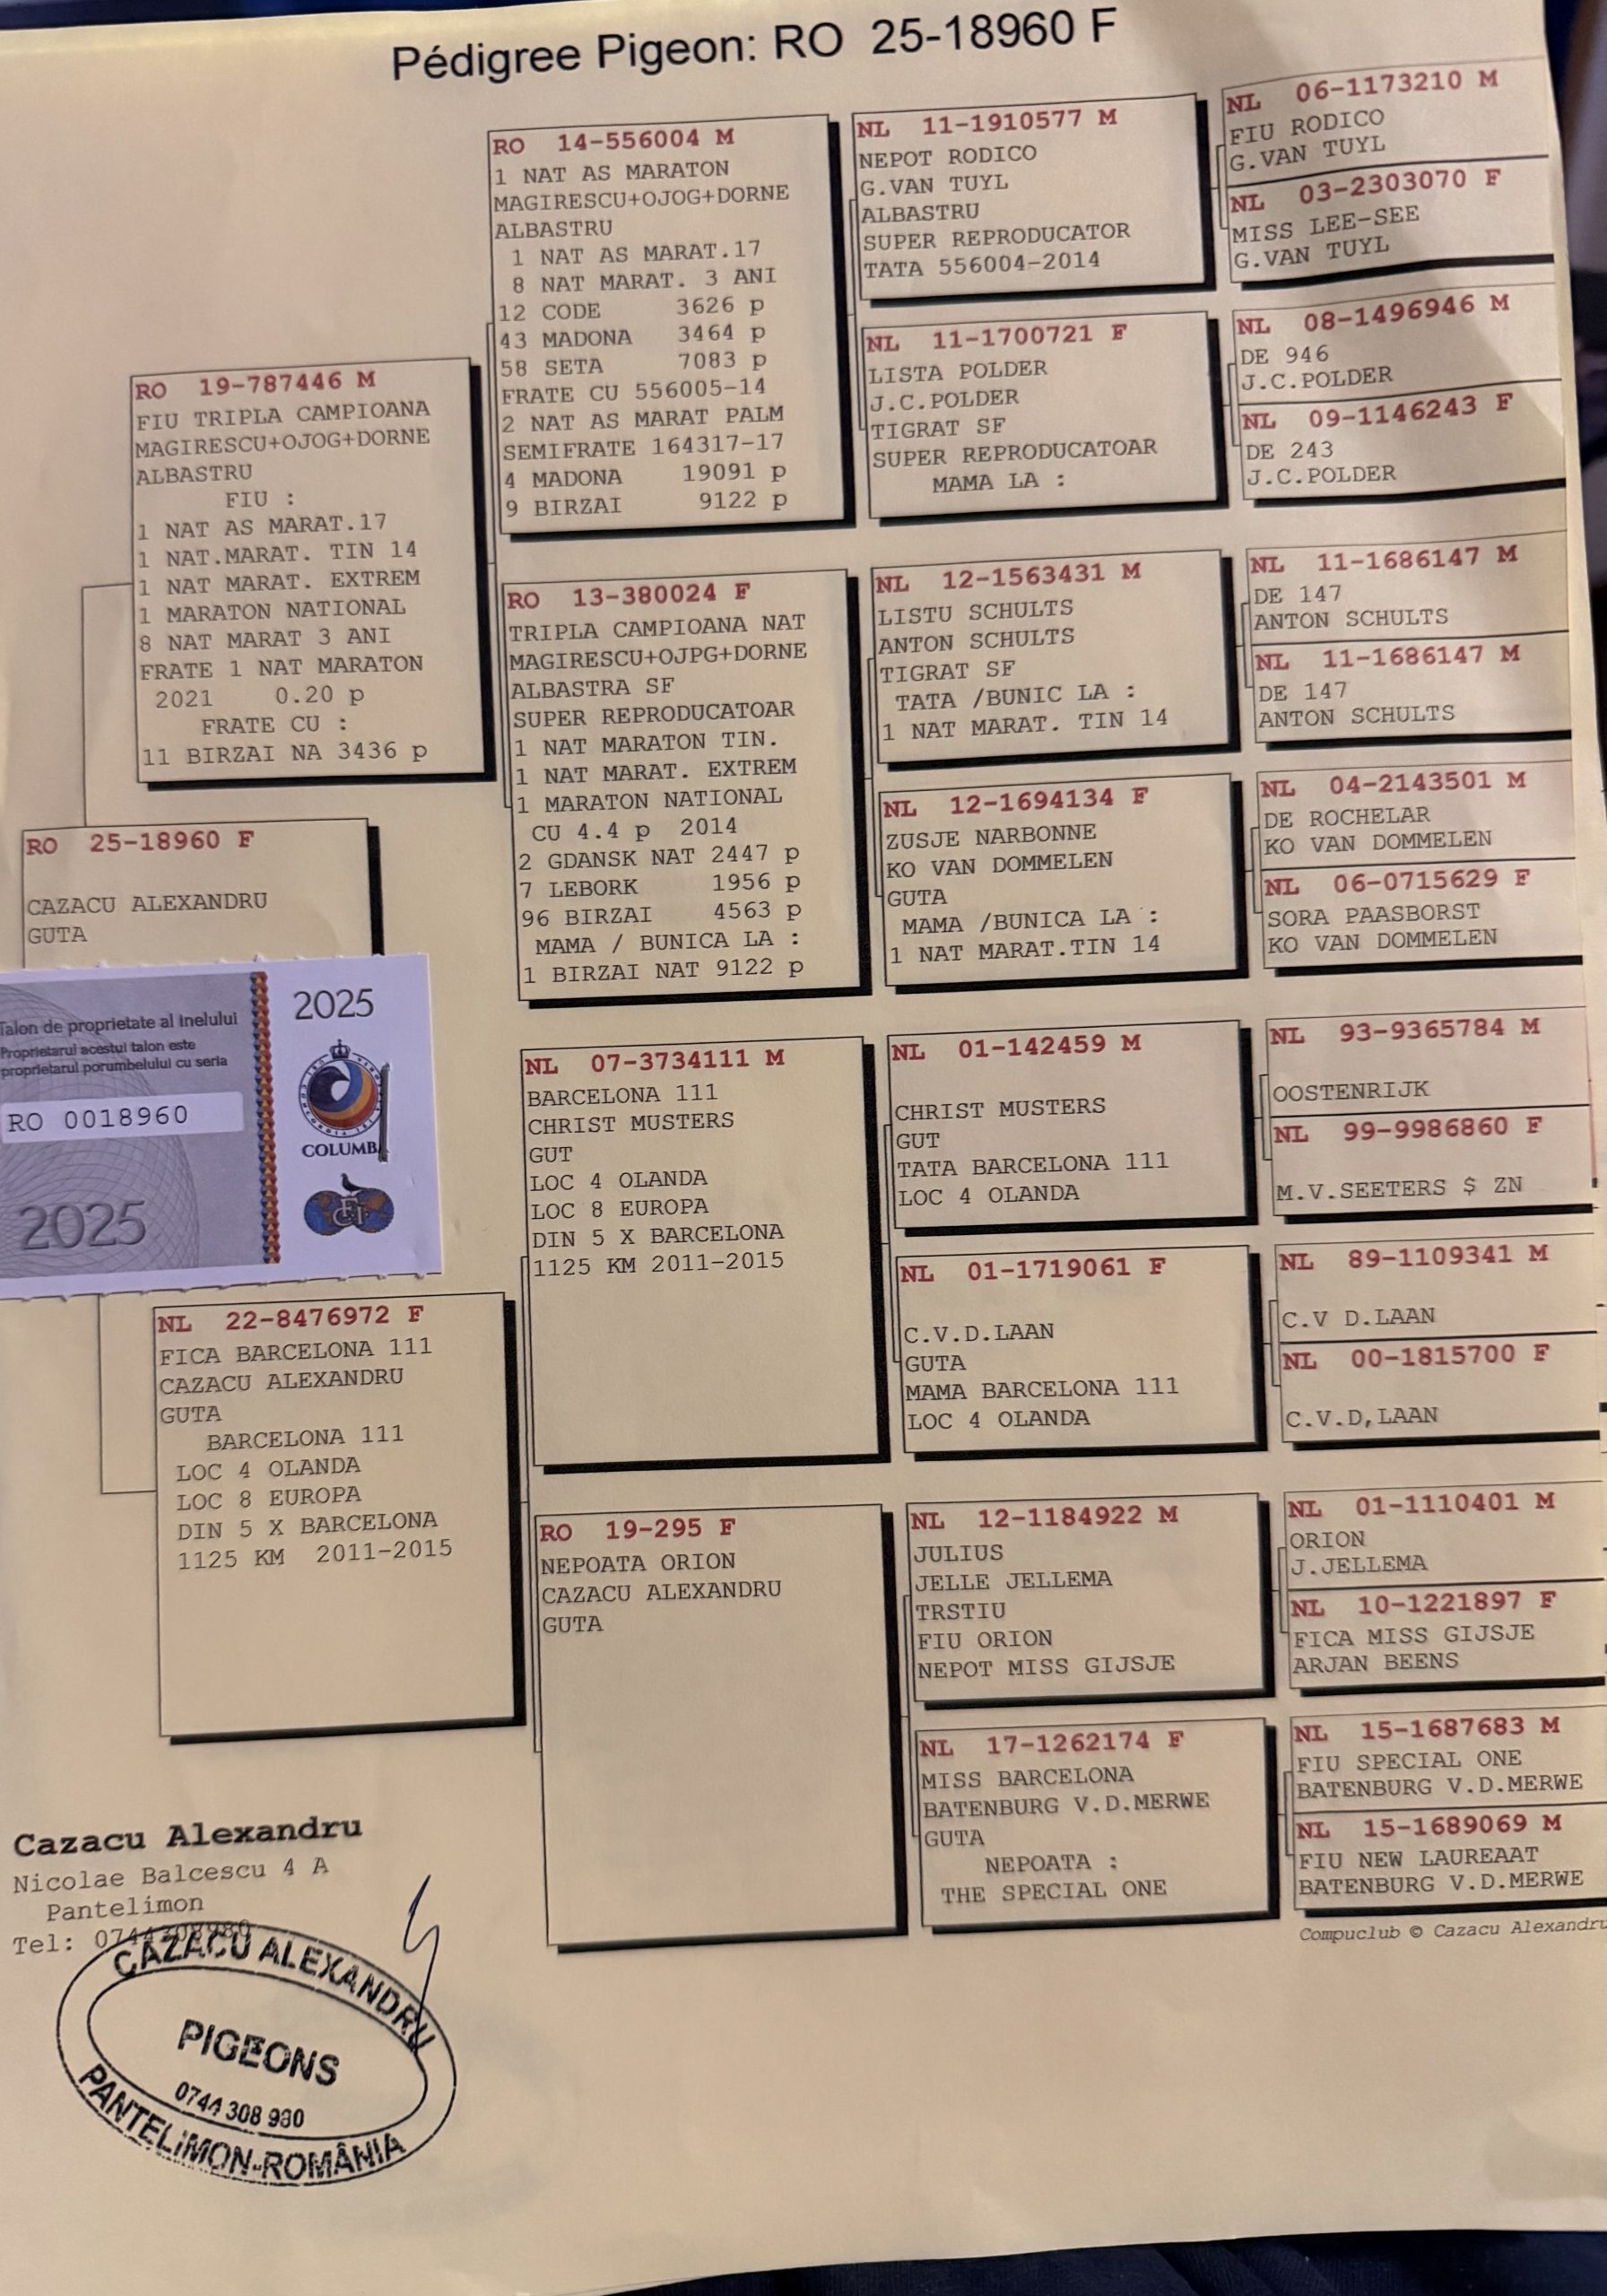 Pédigree Pigeon: RO 25-18960 F
RO 25-18960 F
CAZACU ALEXANDRU
GUTA
Talon de proprietate al inelului
Proprietarul acestui talon este
proprietarul porumbelului cu seria
RO 0018960
2025
2025
COLUMBA
FCI
RO 19-787446 M
FIU TRIPLA CAMPIOANA
MAGIRESCU+OJOG+DORNE
ALBASTRU
FIU :
1 NAT AS MARAT.17
1 NAT.MARAT. TIN 14
1 NAT MARAT. EXTREM
1 MARATON NATIONAL
8 NAT MARAT 3 ANI
FRATE 1 NAT MARATON
2021 0.20 p
FRATE CU :
11 BIRZAI NA 3436 p
NL 22-8476972 F
FICA BARCELONA 111
CAZACU ALEXANDRU
GUTA
BARCELONA 111
LOC 4 OLANDA
LOC 8 EUROPA
DIN 5 X BARCELONA
1125 KM 2011-2015
RO 14-556004 M
1 NAT AS MARATON
MAGIRESCU+OJOG+DORNE
ALBASTRU
1 NAT AS MARAT.17
8 NAT MARAT. 3 ANI
12 CODE 3626 p
43 MADONA 3464 p
58 SETA 7083 p
FRATE CU 556005-14
2 NAT AS MARAT PALM
SEMIFRATE 164317-17
4 MADONA 19091 p
9 BIRZAI 9122 p
RO 13-380024 F
TRIPLA CAMPIOANA NAT
MAGIRESCU+OJPG+DORNE
ALBASTRA SF
SUPER REPRODUCATOAR
1 NAT MARATON TIN.
1 NAT MARAT. EXTREM
1 MARATON NATIONAL
CU 4.4 p 2014
2 GDANSK NAT 2447 p
7 LEBORK 1956 p
96 BIRZAI 4563 p
MAMA / BUNICA LA :
1 BIRZAI NAT 9122 p
NL 07-3734111 M
BARCELONA 111
CHRIST MUSTERS
GUT
LOC 4 OLANDA
LOC 8 EUROPA
DIN 5 X BARCELONA
1125 KM 2011-2015
RO 19-295 F
NEPOATA ORION
CAZACU ALEXANDRU
GUTA
NL 11-1910577 M
NEPOT RODICO
G.VAN TUYL
ALBASTRU
SUPER REPRODUCATOR
TATA 556004-2014
NL 11-1700721 F
LISTA POLDER
J.C.POLDER
TIGRAT SF
SUPER REPRODUCATOAR
MAMA LA :
NL 12-1563431 M
LISTU SCHULTS
ANTON SCHULTS
TIGRAT SF
TATA /BUNIC LA :
1 NAT MARAT. TIN 14
NL 12-1694134 F
ZUSJE NARBONNE
KO VAN DOMMELEN
GUTA
MAMA /BUNICA LA :
1 NAT MARAT.TIN 14
NL 01-142459 M
CHRIST MUSTERS
GUT
TATA BARCELONA 111
LOC 4 OLANDA
NL 01-1719061 F
C.V.D.LAAN
GUTA
MAMA BARCELONA 111
LOC 4 OLANDA
NL 12-1184922 M
JULIUS
JELLE JELLEMA
TRSTIU
FIU ORION
NEPOT MISS GIJSJE
NL 17-1262174 F
MISS BARCELONA
BATENBURG V.D.MERWE
GUTA
NEPOATA :
THE SPECIAL ONE
NL 06-1173210 M
FIU RODICO
G.VAN TUYL
NL 03-2303070 F
MISS LEE-SEE
G.VAN TUYL
NL 08-1496946 M
DE 946
J.C.POLDER
NL 09-1146243 F
DE 243
J.C.POLDER
NL 11-1686147 M
DE 147
ANTON SCHULTS
NL 11-1686147 M
DE 147
ANTON SCHULTS
NL 04-2143501 M
DE ROCHELAR
KO VAN DOMMELEN
NL 06-0715629 F
SORA PAASBORST
KO VAN DOMMELEN
NL 93-9365784 M
OOSTENRIJK
NL 99-9986860 F
M.V.SEETERS $ ZN
NL 89-1109341 M
C.V D.LAAN
NL 00-1815700 F
C.V.D,LAAN
NL 01-1110401 M
ORION
J.JELLEMA
NL 10-1221897 F
FICA MISS GIJSJE
ARJAN BEENS
NL 15-1687683 M
FIU SPECIAL ONE
BATENBURG V.D.MERWE
NL 15-1689069 M
FIU NEW LAUREAAT
BATENBURG V.D.MERWE
Compuclub © Cazacu Alexandru
Cazacu Alexandru
Nicolae Balcescu 4 A
Pantelimon
Tel: 0744308980
CAZACU ALEXANDRU
PIGEONS
0744 308 980
PANTELIMON-ROMÂNIA